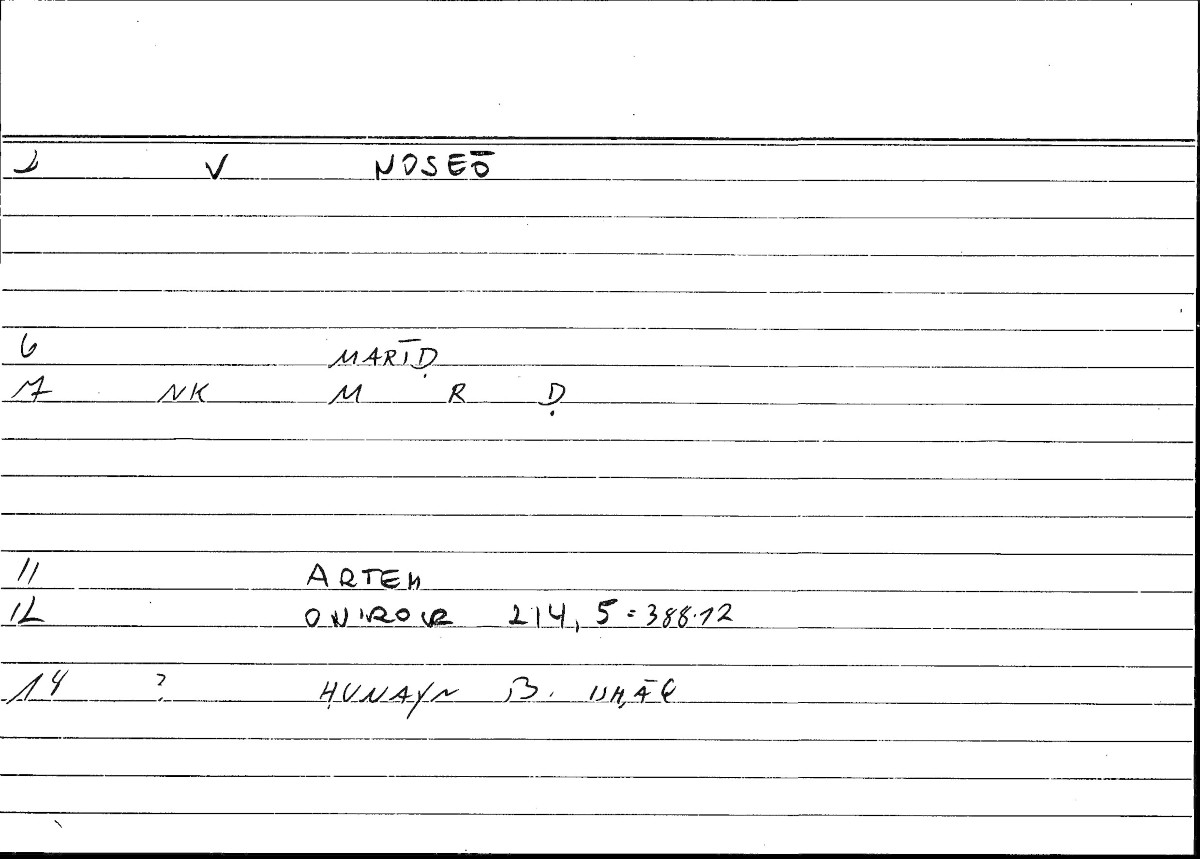 V NOSEŌ
6 MARĪḌ
7 NK M R Ḍ
11 ARTEM
12 ONIROCR 214, 5 = 388.12
14 ? ḤUNAYN B. ISḤĀQ